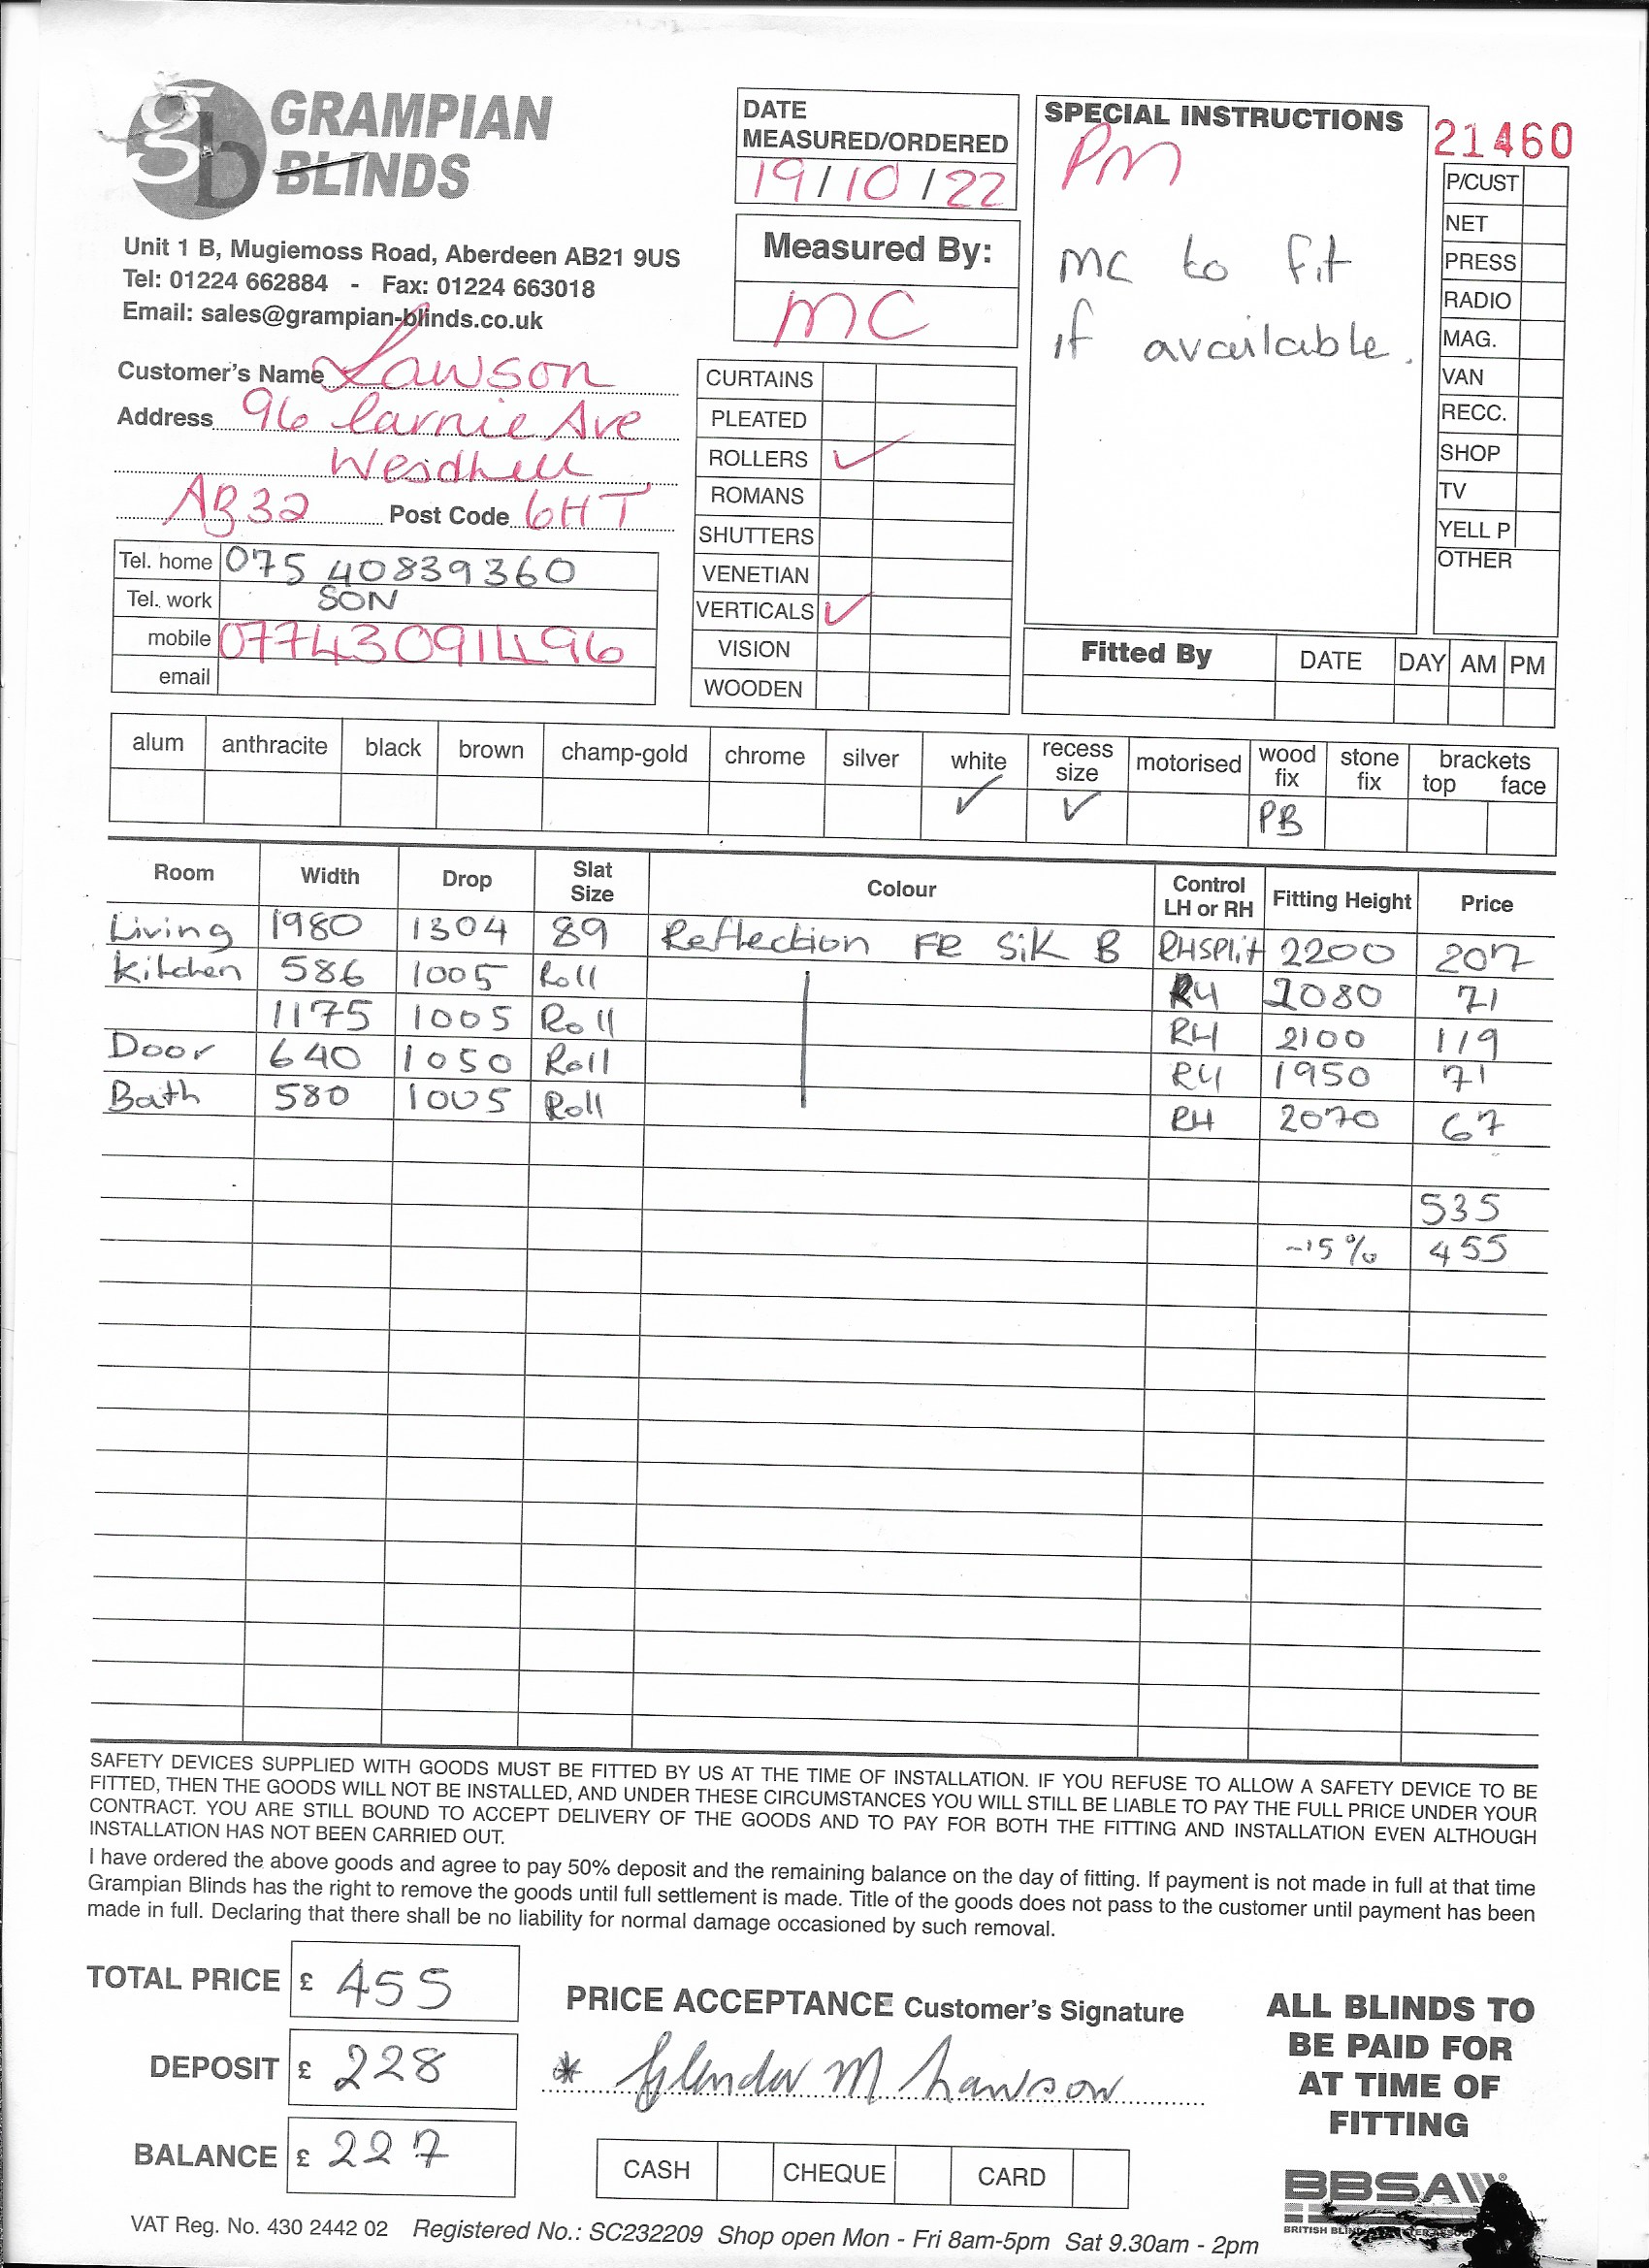 gb GRAMPIAN BLINDS
Unit 1 B, Mugiemoss Road, Aberdeen AB21 9US
Tel: 01224 662884 - Fax: 01224 663018
Email: sales@grampian-blinds.co.uk
DATE MEASURED/ORDERED
19/10/22
Measured By:
MC
SPECIAL INSTRUCTIONS
PM
MC to fit
if available.
21460
P/CUST
NET
PRESS
RADIO
MAG.
VAN
RECC.
SHOP
TV
YELL P
OTHER
Customer's Name Lawson
Address 96 Carnie Ave
AB32 Post Code 6HT
Tel. home 075 40839360
Tel. work SON
mobile
email
CURTAINS
PLEATED
ROLLERS ✓
ROMANS
SHUTTERS
VENETIAN
VERTICALS ✓
VISION
WOODEN
Fitted By DATE DAY AM PM
alum anthracite black brown champ-gold chrome silver white recess size motorised wood fix stone fix brackets top face
✓ ✓ PB
Room Width Drop Slat Size Colour Control LH or RH Fitting Height Price
Living 1980 1304 89 Reflection FR Silk B RH Split 2200 207
Kitchen 586 1005 Roll RH 2080 71
1175 1005 Roll RH 2100 119
Door 640 1050 Roll RH 1950 71
Bath 580 1005 Roll RH 2070 67
535
-15% 455
SAFETY DEVICES SUPPLIED WITH GOODS MUST BE FITTED BY US AT THE TIME OF INSTALLATION. IF YOU REFUSE TO ALLOW A SAFETY DEVICE TO BE
FITTED, THEN THE GOODS WILL NOT BE INSTALLED, AND UNDER THESE CIRCUMSTANCES YOU WILL STILL BE LIABLE TO PAY THE FULL PRICE UNDER YOUR
CONTRACT. YOU ARE STILL BOUND TO ACCEPT DELIVERY OF THE GOODS AND TO PAY FOR BOTH THE FITTING AND INSTALLATION EVEN ALTHOUGH
INSTALLATION HAS NOT BEEN CARRIED OUT.
I have ordered the above goods and agree to pay 50% deposit and the remaining balance on the day of fitting. If payment is not made in full at that time
Grampian Blinds has the right to remove the goods until full settlement is made. Title of the goods does not pass to the customer until payment has been
made in full. Declaring that there shall be no liability for normal damage occasioned by such removal.
TOTAL PRICE £ 455
DEPOSIT £ 228
BALANCE £ 227
PRICE ACCEPTANCE Customer's Signature
* Glenda M Lawson
CASH CHEQUE CARD
ALL BLINDS TO
BE PAID FOR
AT TIME OF
FITTING
BBSA
VAT Reg. No. 430 2442 02 Registered No.: SC232209 Shop open Mon - Fri 8am-5pm Sat 9.30am - 2pm